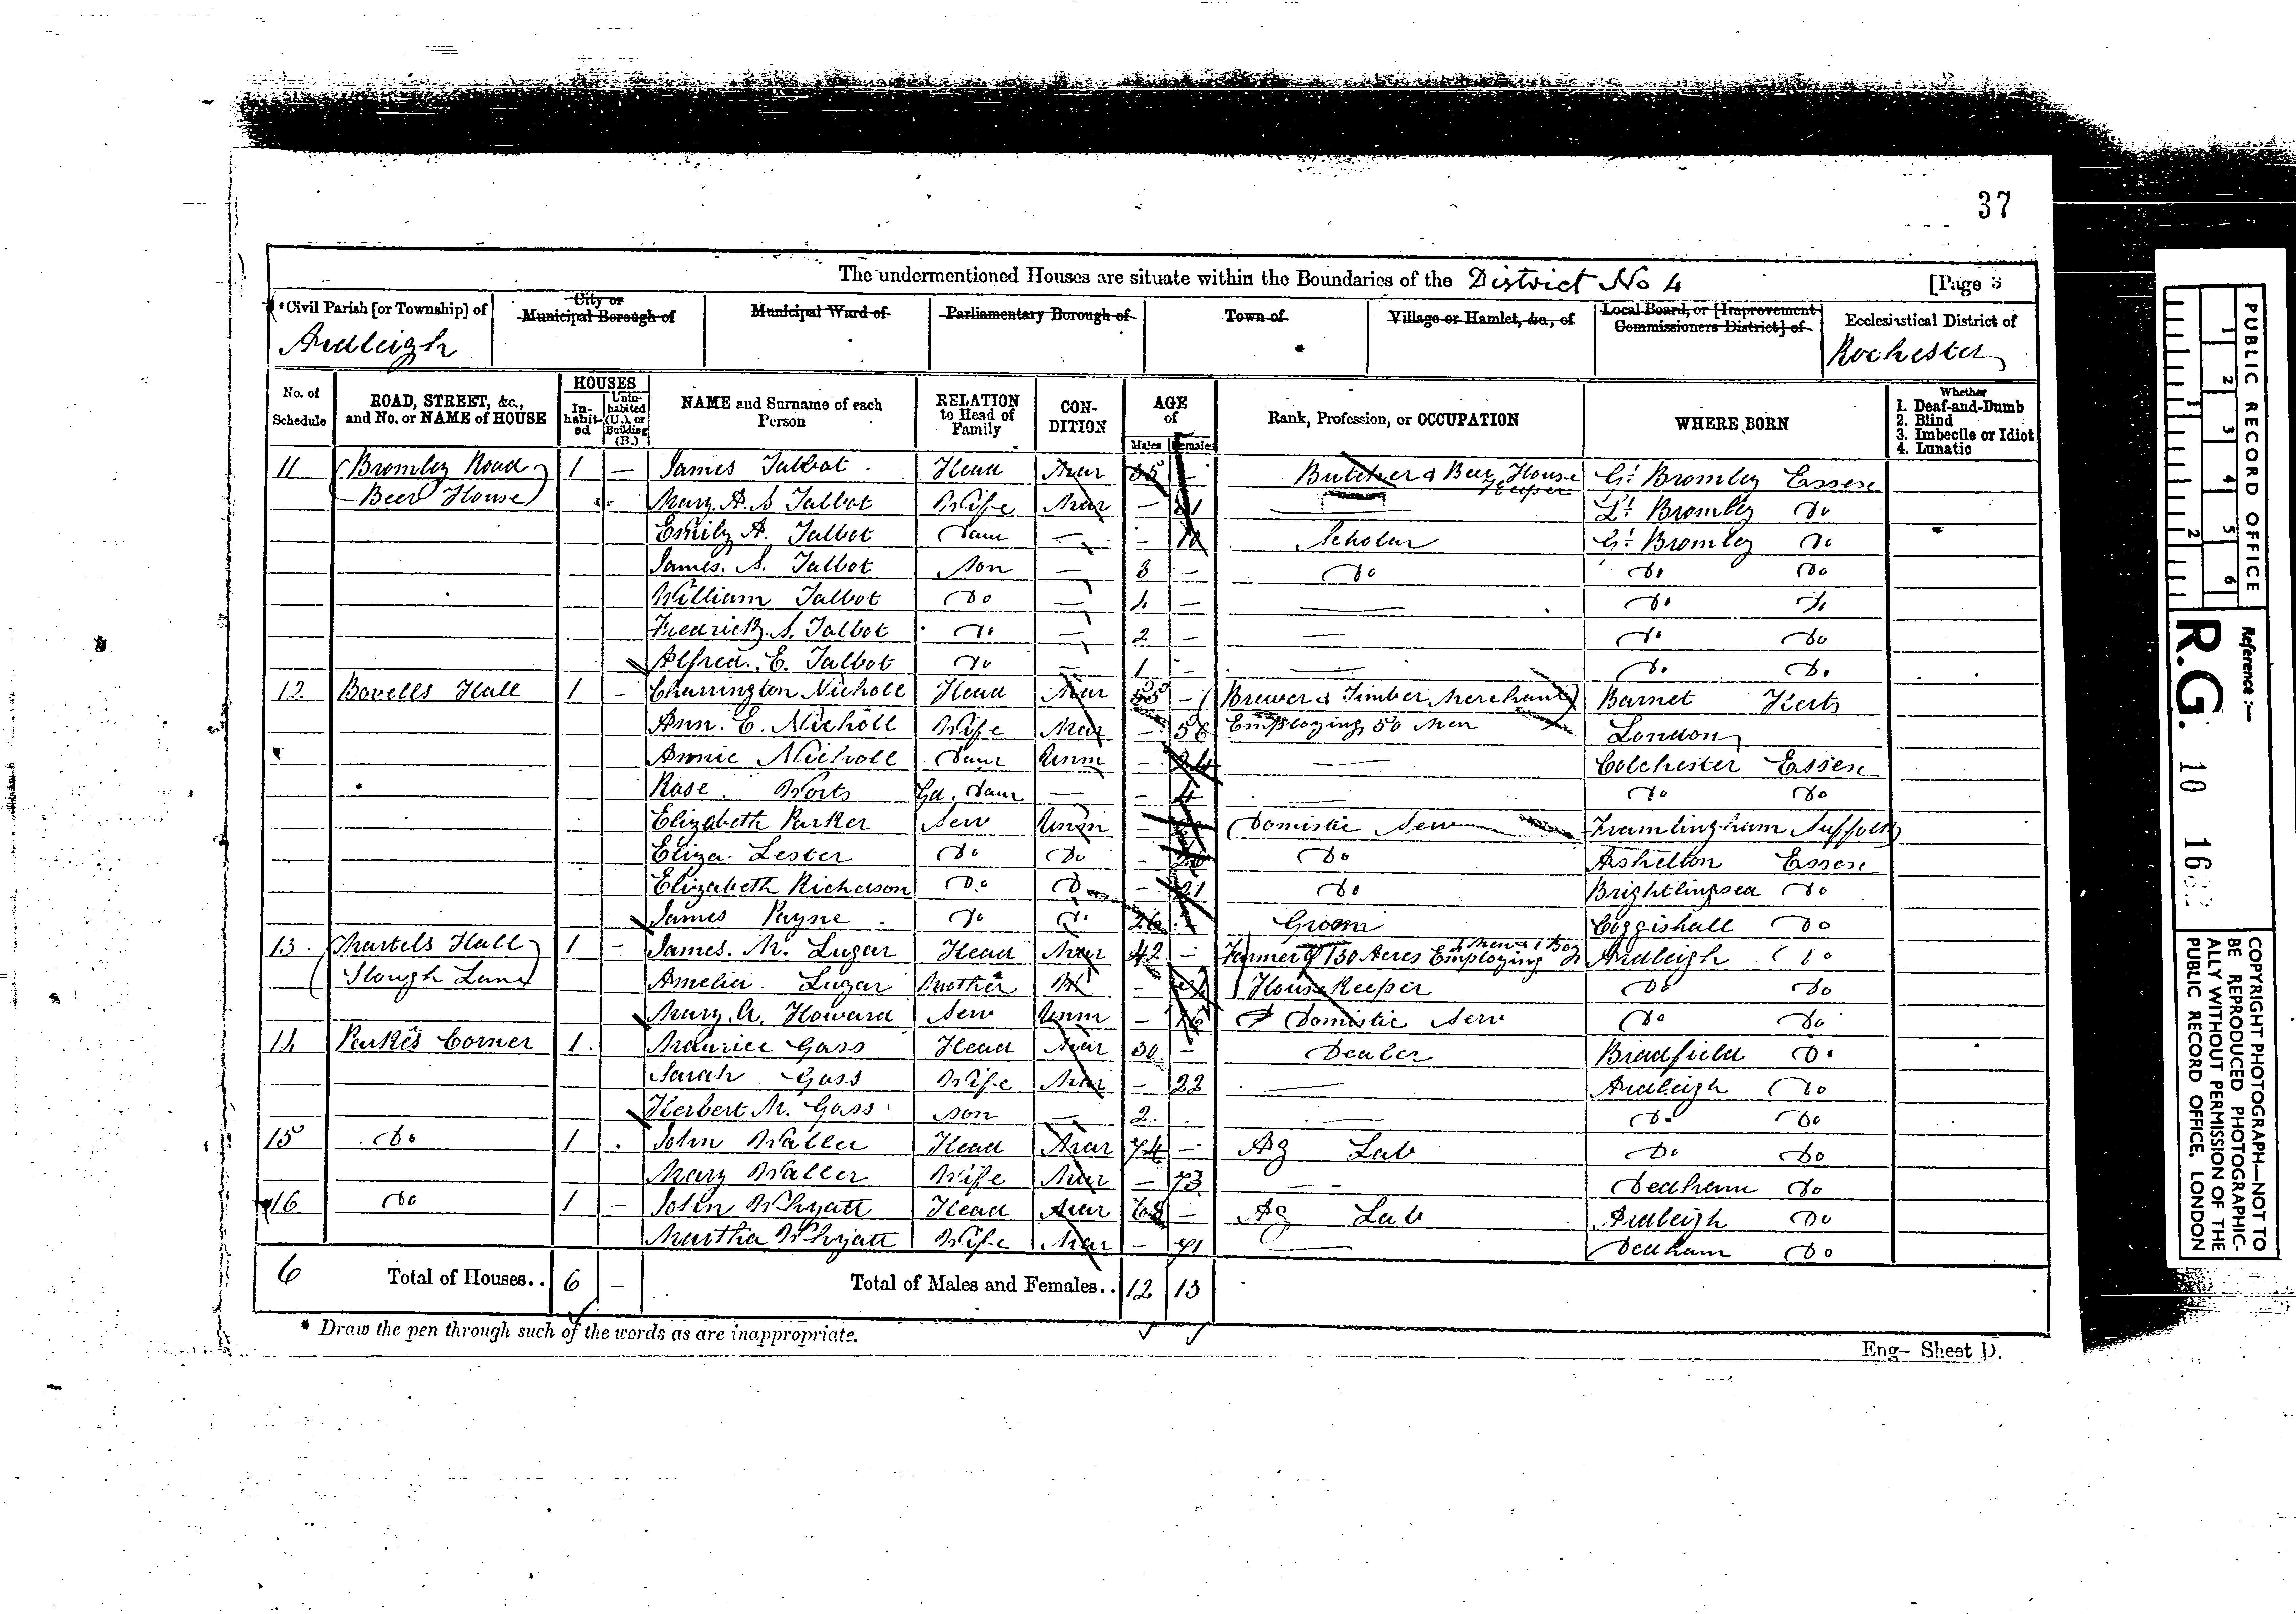 37
The undermentioned Houses are situate within the Boundaries of the District No 4 [Page 3
* Civil Parish [or Township] of
Ardleigh
City or Municipal Borough of
Municipal Ward of
Parliamentary Borough of
Town of
Village or Hamlet, &c., of
Local Board, or [Improvement Commissioners District] of
Ecclesiastical District of
Rochester
No. of Schedule
ROAD, STREET, &c., and No. or NAME of HOUSE
HOUSES
In-habit-ed
Unin-habited (U.), or Building (B.)
NAME and Surname of each Person
RELATION to Head of Family
CON-DITION
AGE of
Males Females
Rank, Profession, or OCCUPATION
WHERE BORN
Whether
1. Deaf-and-Dumb
2. Blind
3. Imbecile or Idiot
4. Lunatic
11 Bromley Road 1 — James Talbot Head Mar 35 — Butcher & Beer House Keeper Gt Bromley Essex
Beer House Mary. A. S Talbot Wife Mar — 31 — Lt Bromley Do
Emily A. Talbot Daur — — 10 Scholar Gt Bromley Do
James. S. Talbot Son — 3 — Do Do Do
William Talbot Do — 4 — — Do Do
Fredrick. S. Talbot Do — 2 — — Do Do
Alfred. E. Talbot Do — 1 — — Do Do
12 Bovells Hall 1 — Charrington Nicholl Head Mar — Brewer & Timber Merchant Barnet Herts
Ann. E. Nicholl Wife Mar — 56 Employing 50 Men London
Annie Nicholl Daur Unm — 24 — Colchester Essex
Rose. Worts Gd. Daur — — 4 — Do Do
Elizabeth Parker Serv Unm — Domistic Serv Framlingham Suffolk
Eliza. Lester Do Do — Do Essex
Elizabeth Richerson Do Do — 21 Do Brightlingsea Do
James Payne Do Do 26 — Groom Coggishall Do
13 Martels Hall 1 — James. M. Lugar Head Mar 42 — Farmer of 130 Acres Employing Men & 1 Boy Ardleigh Do
Slough Lane Amelia. Lugar Mother W — House Keeper Do Do
Mary. A. Howard Serv Unm — 16 Domistic Serv Do Do
14 Perks Corner 1 Maurice Gass Head Mar 30 — Dealer Bradfield Do
Sarah Gass Wife Mar — 22 — Ardleigh Do
Herbert M. Gass Son — 2 — Do Do
15 Do 1 John Waller Head Mar 74 — Ag Lab Do Do
Mary Waller Wife Mar — 73 — Dedham Do
16 Do 1 — John Whyatt Head Mar 68 — Ag Lab Ardleigh Do
Martha Whyatt Wife Mar — 71 — Dedham Do
6 Total of Houses.. 6 — Total of Males and Females.. 12 13
* Draw the pen through such of the words as are inappropriate.
Eng— Sheet D.
PUBLIC RECORD OFFICE
1 2 3 4 5 6
1 2
Reference :—
R.G. 10
COPYRIGHT PHOTOGRAPH—NOT TO
BE REPRODUCED PHOTOGRAPHIC-
ALLY WITHOUT PERMISSION OF THE
PUBLIC RECORD OFFICE, LONDON